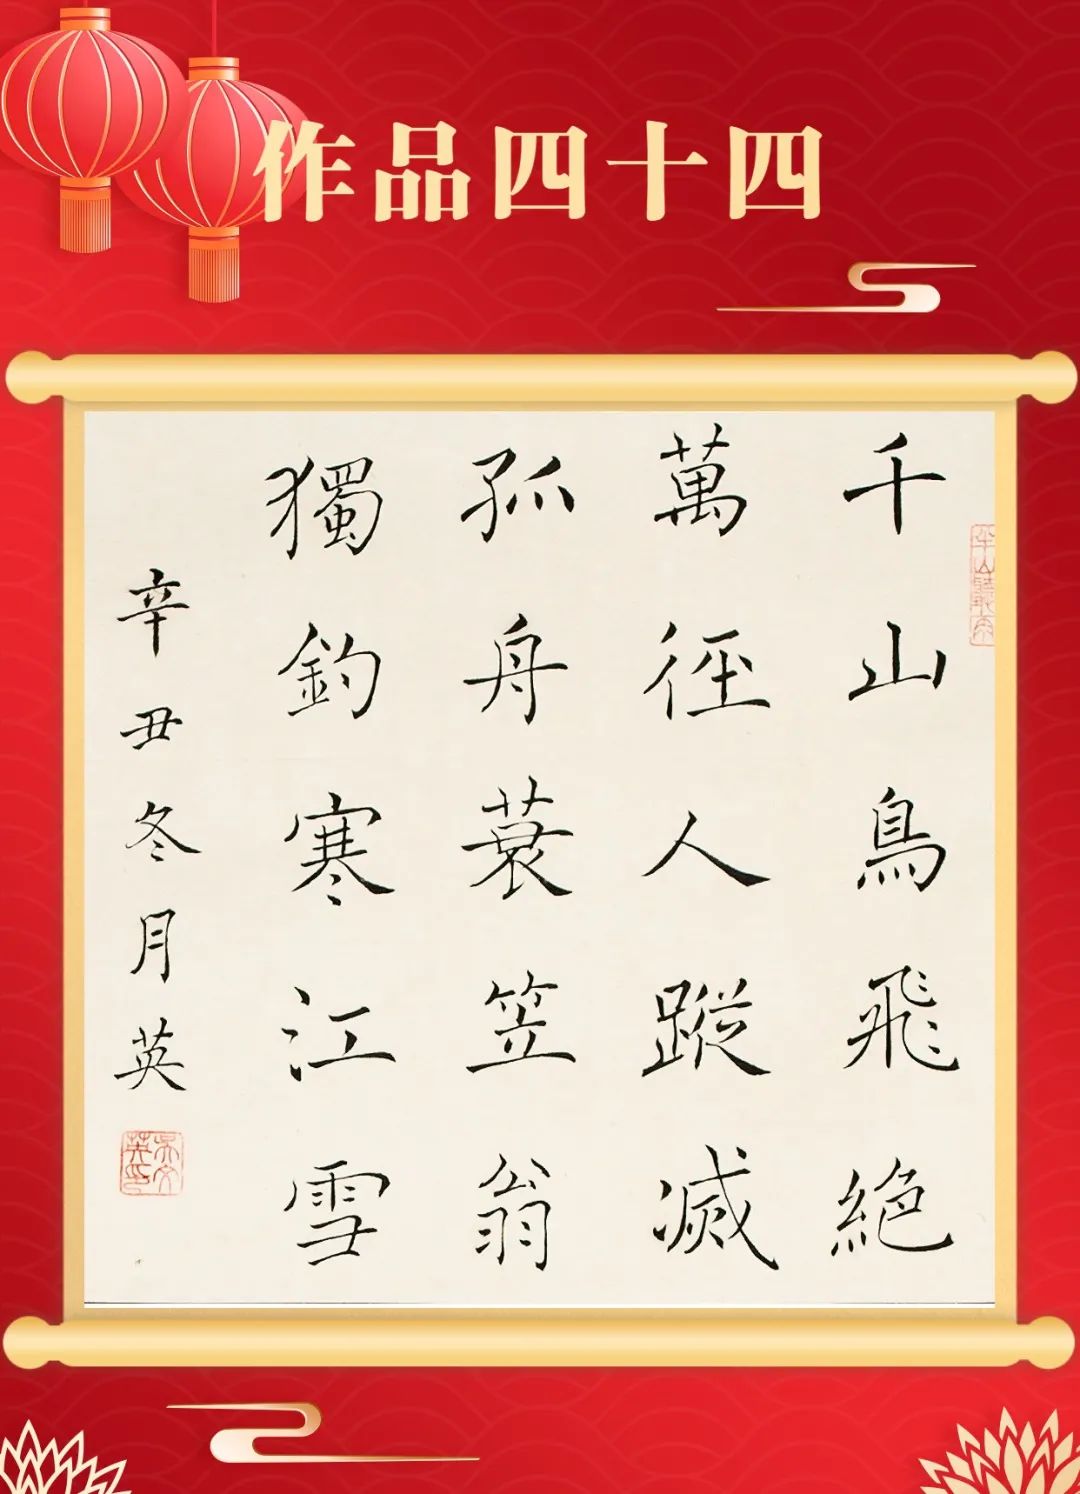 作品四十四
千山鳥飛絶
萬徑人蹤滅
孤舟蓑笠翁
獨釣寒江雪
辛丑冬月英